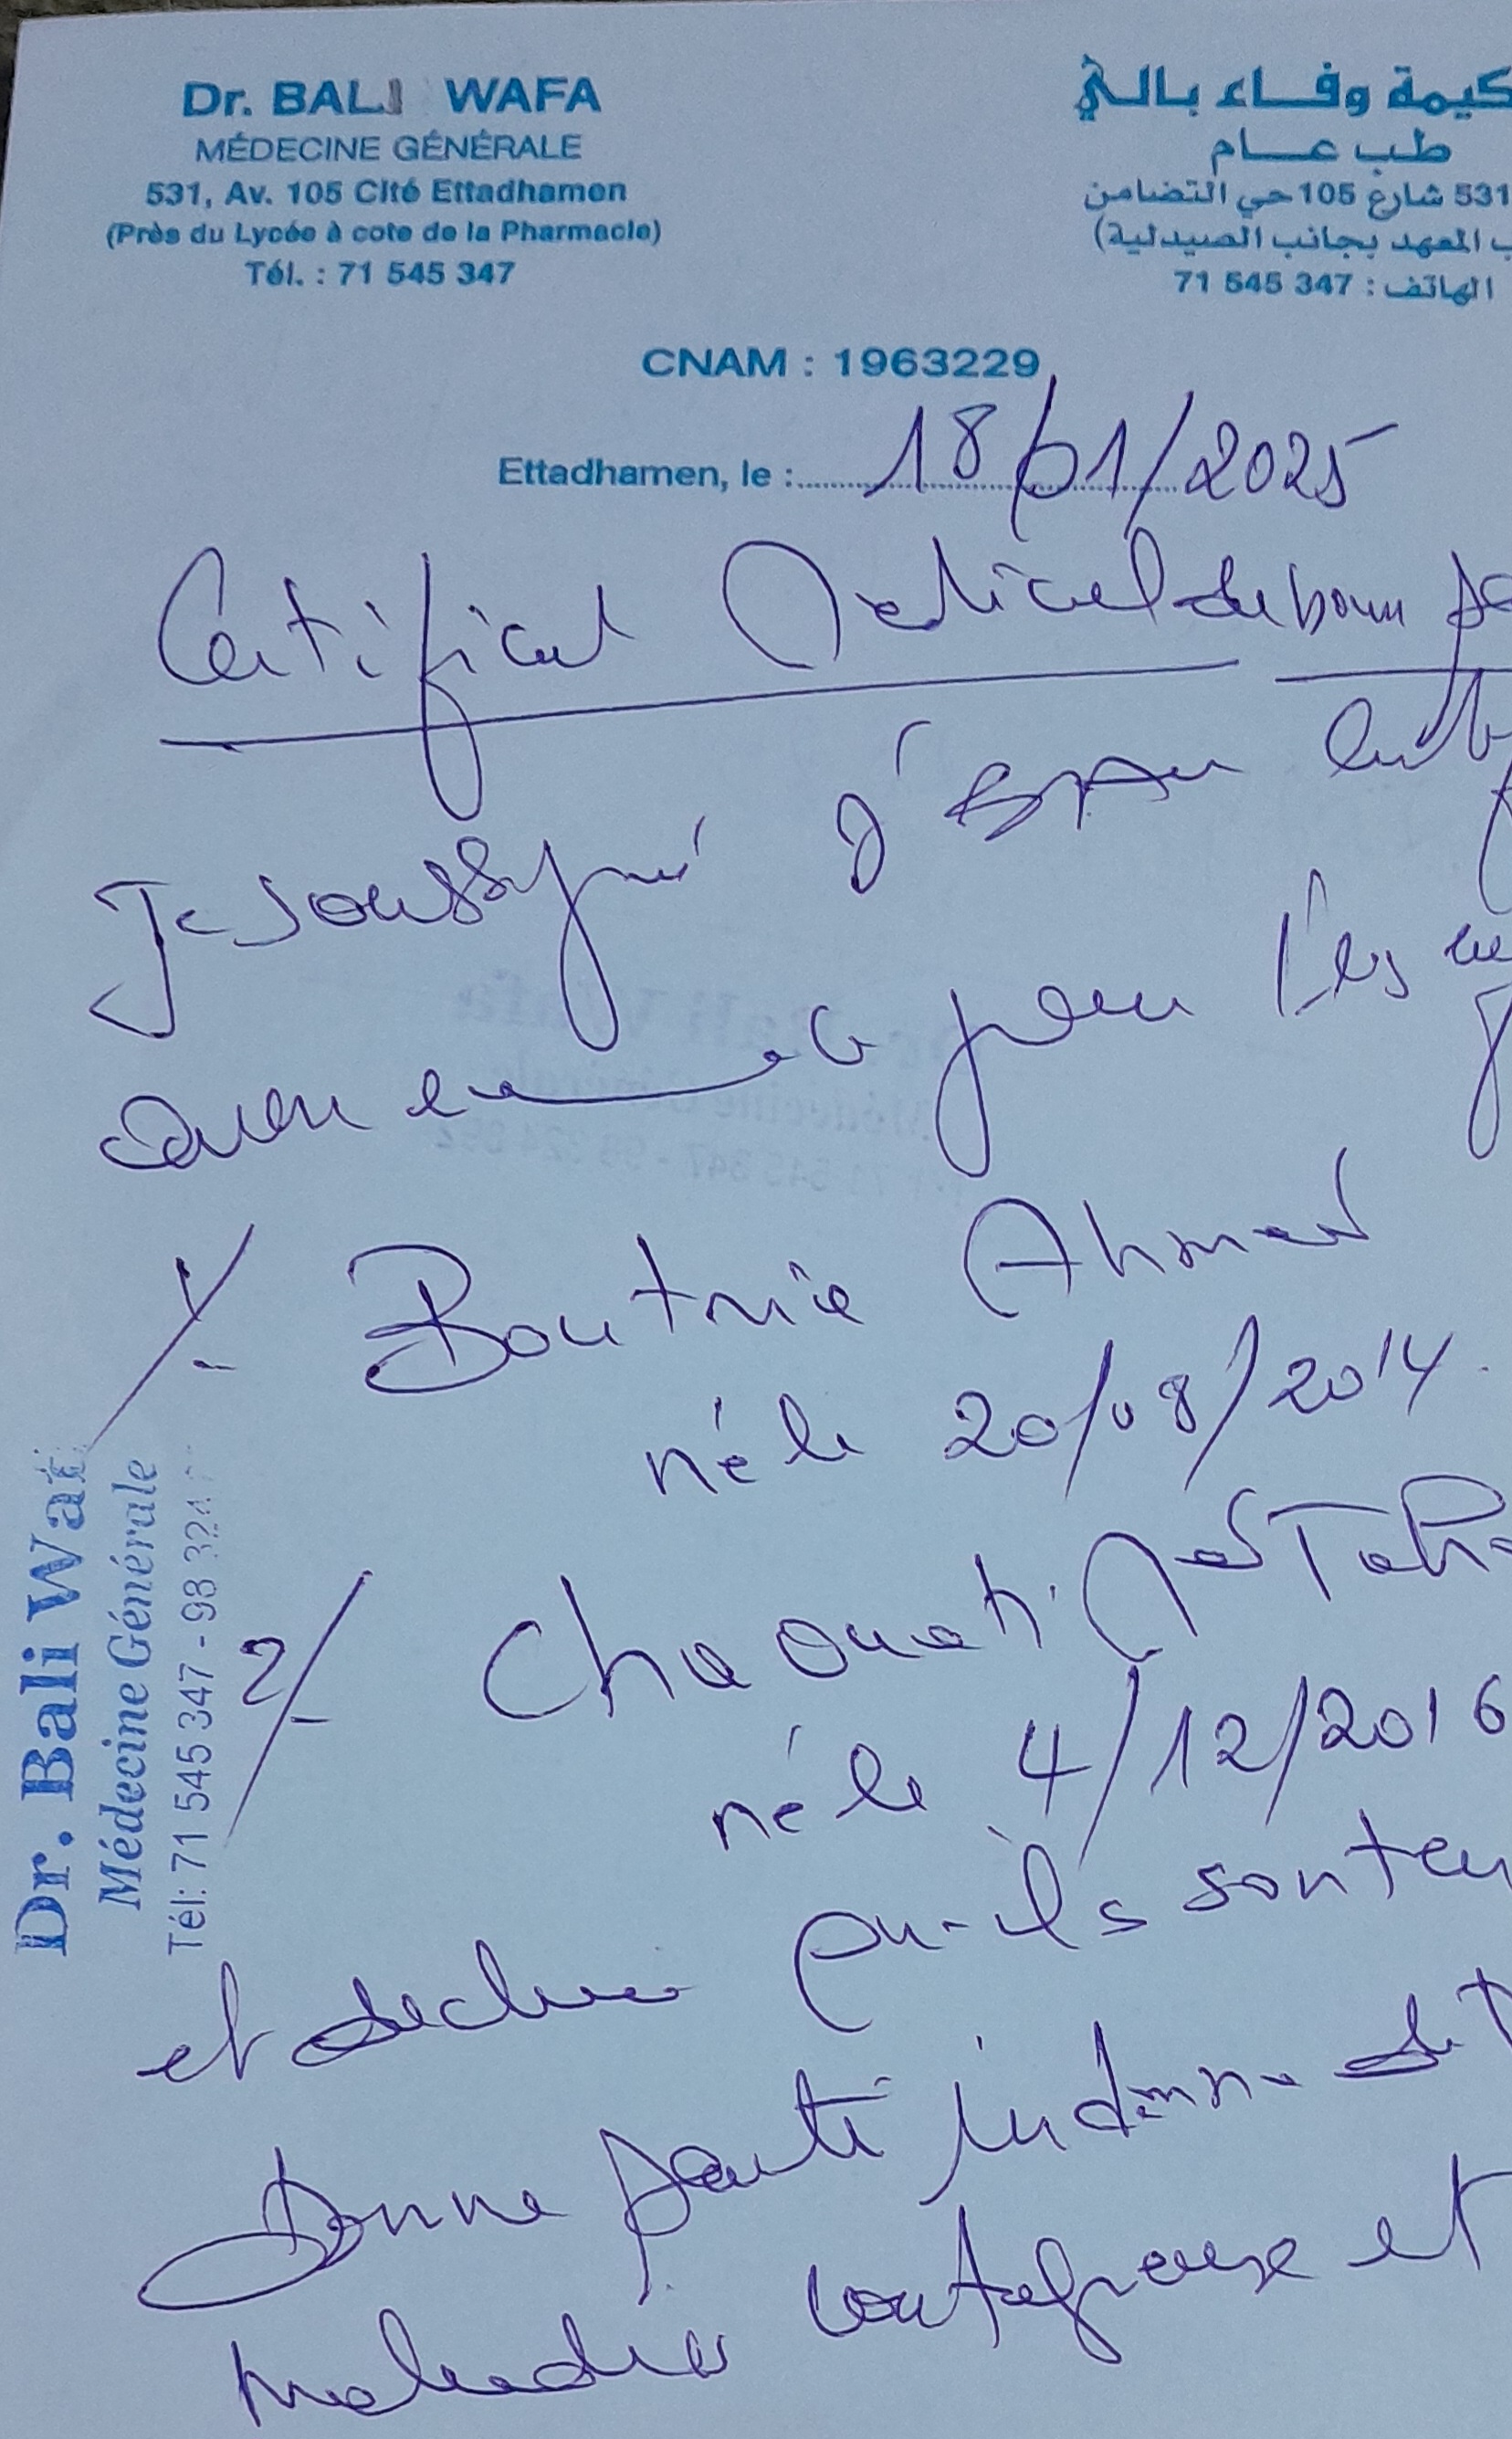 Dr. BALI WAFA
MÉDECINE GÉNÉRALE
531, Av. 105 Cité Ettadhamen
(Près du Lycée à cote de la Pharmacie)
Tél. : 71 545 347
كيمة وفاء بالي
طب عام
531 شارع 105 حي التضامن
ب المعهد بجانب الصيدلية)
الهاتف : 347 545 71
CNAM : 1963229
Ettadhamen, le : 18/01/2025
Certificat Médical de bonne
Je soussigné
avoir examiné ce jour les
1/- Boutrie Ahmed
né le 20/08/2014.
2/- Chaouati Med
né le 4/12/2016
et déclare qu'ils sont en
Bonne santé indemne de
maladies contagieuse et
Dr. Bali Waf
Médecine Générale
Tél: 71 545 347 - 98 324